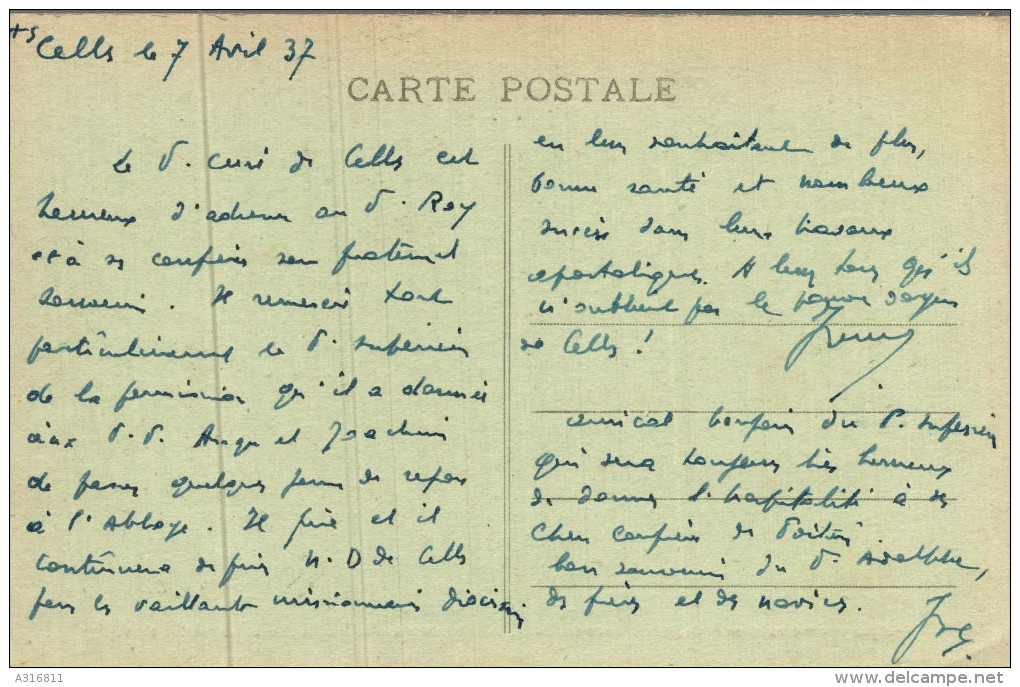 +s
Celles le 7 Avril 37
CARTE POSTALE
Le P. curé de Celles est
heureux d'adresser au P. Rey
et à ses confrères son fraternel
souvenir. Il remercie tout
particulièrement le P. supérieur
de la permission qu'il a donnée
aux P.P. Ange et Joachim
de passer quelques jours de repos
à l'Abbaye. Il prie et il
continuera de prier N. D de Celles
pour les vaillants missionnaires diocésains
en leur souhaitant de plus,
bonne santé et nombreux
succès dans leurs travaux
apostoliques. A leur tour qu'ils
n'oublient pas le pauvre doyen
de Celles!
amical bonjour du P. supérieur
qui sera toujours très heureux
de donner l'hospitalité à ses
chers confrères de Poitiers.
bon souvenir du P. Adolphe,
des frères et des novices.
A316811
www.delcampe.net